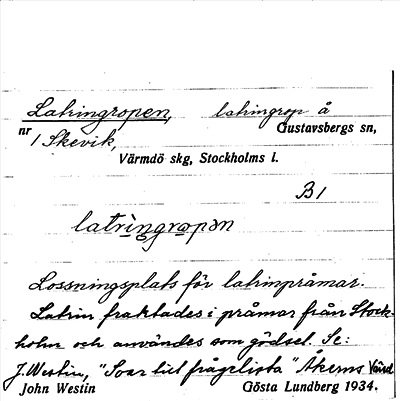 Latringropen, latringrop å
nr Gustavsbergs sn,
1 Skevik,
Värmdö skg, Stockholms l.
B1
latrìngropən
Lossningsplats för latrinpråmar.
Latrin fraktades i pråmar från Stock-
holm och användes som gödsel. Se:
J. Westin, "Svar till frågelista" Åkerns
John Westin Gösta Lundberg 1934.